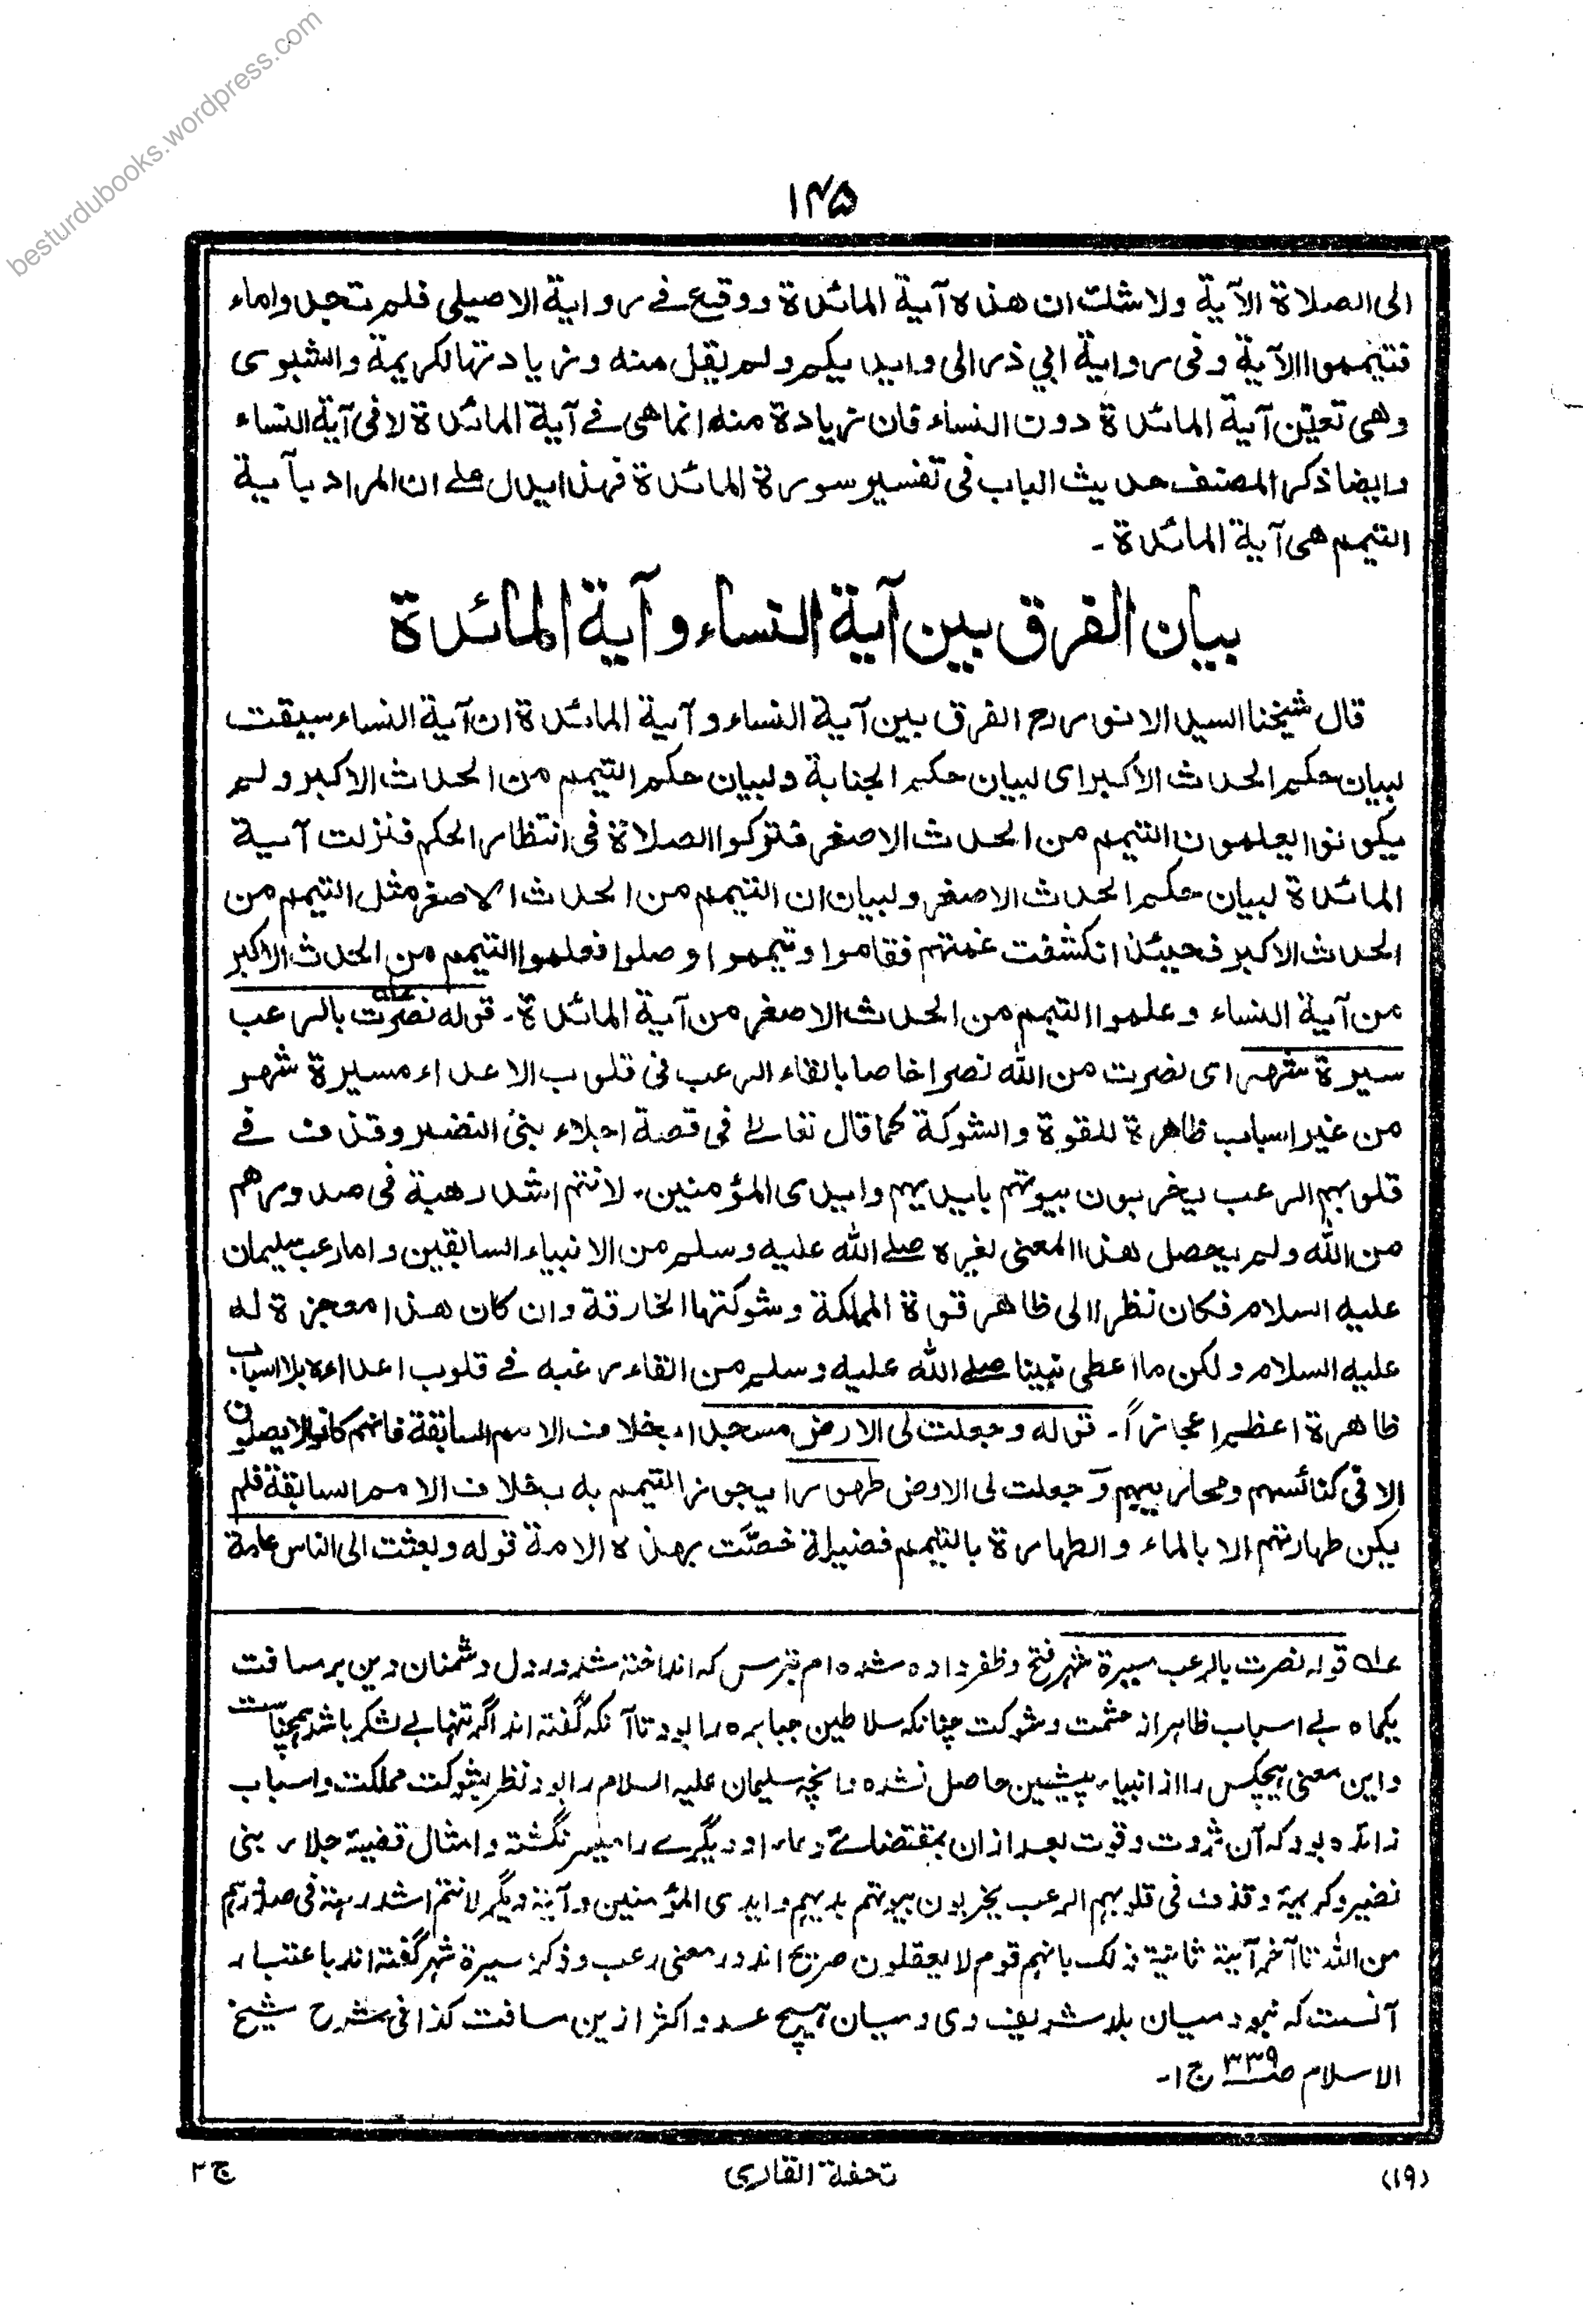 besturdubooks.wordpress.com
۱۴۵
الى الصلاة الآية ولا شك ان هذه آية المائدة ووقع فے رواية الاصيلى فلم تجدوا ماء
فتيمموا الآية وفى رواية ابي ذر الى وايديكم ولم يقل منه وزيادتها لكريمة والشبوى
وهى تعيّن آية المائدة دون النساء فان زيادة منه انما هى فے آية المائدة لا فى آية النساء
وايضا ذكر المصنف حديث الباب فى تفسير سورة المائدة فهذا يدل على ان المراد بآية
التيمم هى آية المائدة ۔
بيان الفرق بين آية النساء و آية المائدة
قال شيخنا السيد الانور رح الفرق بين آية النساء و آية المائدة ان آية النساء سيقت
لبيان حكم الحدث الاكبر اى لبيان حكم الجنابة ولبيان حكم التيمم من الحدث الاكبر ولم
يكونوا يعلمون التيمم من الحدث الاصغر فتركوا الصلاة فى انتظار الحكم فنزلت آية
المائدة لبيان حكم الحدث الاصغر ولبيان ان التيمم من الحدث الاصغر مثل التيمم من
الحدث الاكبر فحينئذ انكشفت غمتهم فقاموا وتيمموا وصلوا فعلموا التيمم من الحدث الاكبر
من آية النساء وعلموا التيمم من الحدث الاصغر من آية المائدة ۔ قوله نصرت بالرعب
سيرة شهر اى نصرت من الله نصرا خاصا بالقاء الرعب فى قلوب الاعداء مسيرة شهر
من غير اسباب ظاهرة للقوة والشوكة كما قال تعالے فى قصة اجلاء بنى النضير وقذف فے
قلوبهم الرعب يخربون بيوتهم بايديهم وايدى المؤمنين ۔ لانتم اشد رهبة فى صدورهم
من الله ولم يحصل هذا المعنى لغيره صلے الله عليه وسلم من الانبياء السابقين واما رعب سليمان
عليه السلام فكان نظرا الى ظاهر قوة المملكة وشوكتها الخارقة وان كان هذا معجزة له
عليه السلام ولكن ما اعطى نبينا صلے الله عليه وسلم من القاء رعبه فے قلوب اعداءه بلا اسباب
ظاهرة اعظم اعجازاً ۔ قوله وجعلت لى الارض مسجدا بخلاف الامم السابقة فانهم كانوا لا يصلون
الا فى كنائسهم ومحاريبهم وجعلت لى الارض طهورا يجوز التيمم به بخلاف الامم السابقة فلم
يكن طهارتهم الا بالماء والطهارة بالتيمم فضيلة خصّت بهذه الامة قوله وبعثت الى الناس عامة
عله قوله نصرت بالرعب مسيرة شهر فتح وظفر داده شده ام بترس که انداخته شد در دل دشمنان دین بر مسافت
یکماه بے اسباب ظاہر از حشمت و شوکت چنانکه سلاطین جبابره را بود تا آنکه گفته اند اگر تنہا بے لشکر باشد ہمچناں ست
و این معنی ہیچکس را از انبیاء پیشین حاصل نشده و آنچه سلیمان علیه السلام را بود نظر بشوکت مملکت و اسباب
زائده بود که آن ثروت و قوت بعد از ان بمقتضائے دعاء او دیگرے را میسر نگشته و امثال قضیۂ جلاء بنی
نضیر و کریمۂ وقذف فی قلوبهم الرعب یخربون بیوتهم بایدیهم وایدی المؤمنین و آیۂ دیگر لانتم اشد رهبة فی صدورهم
من الله تا آخر آیۂ ثانیة ذلک بانهم قوم لا یعقلون صریح اند در معنی رعب و ذکر سیرة شهر گفته اند باعتبار
آنست که نبود میان بلد شریف وی و میان ہیچ عدو اکثر ازین مسافت کذا فی شرح شیخ
الاسلام صـ ۳۳۹ ج۱ ۔
(۱۹)
تحفة القارى
ج ۲